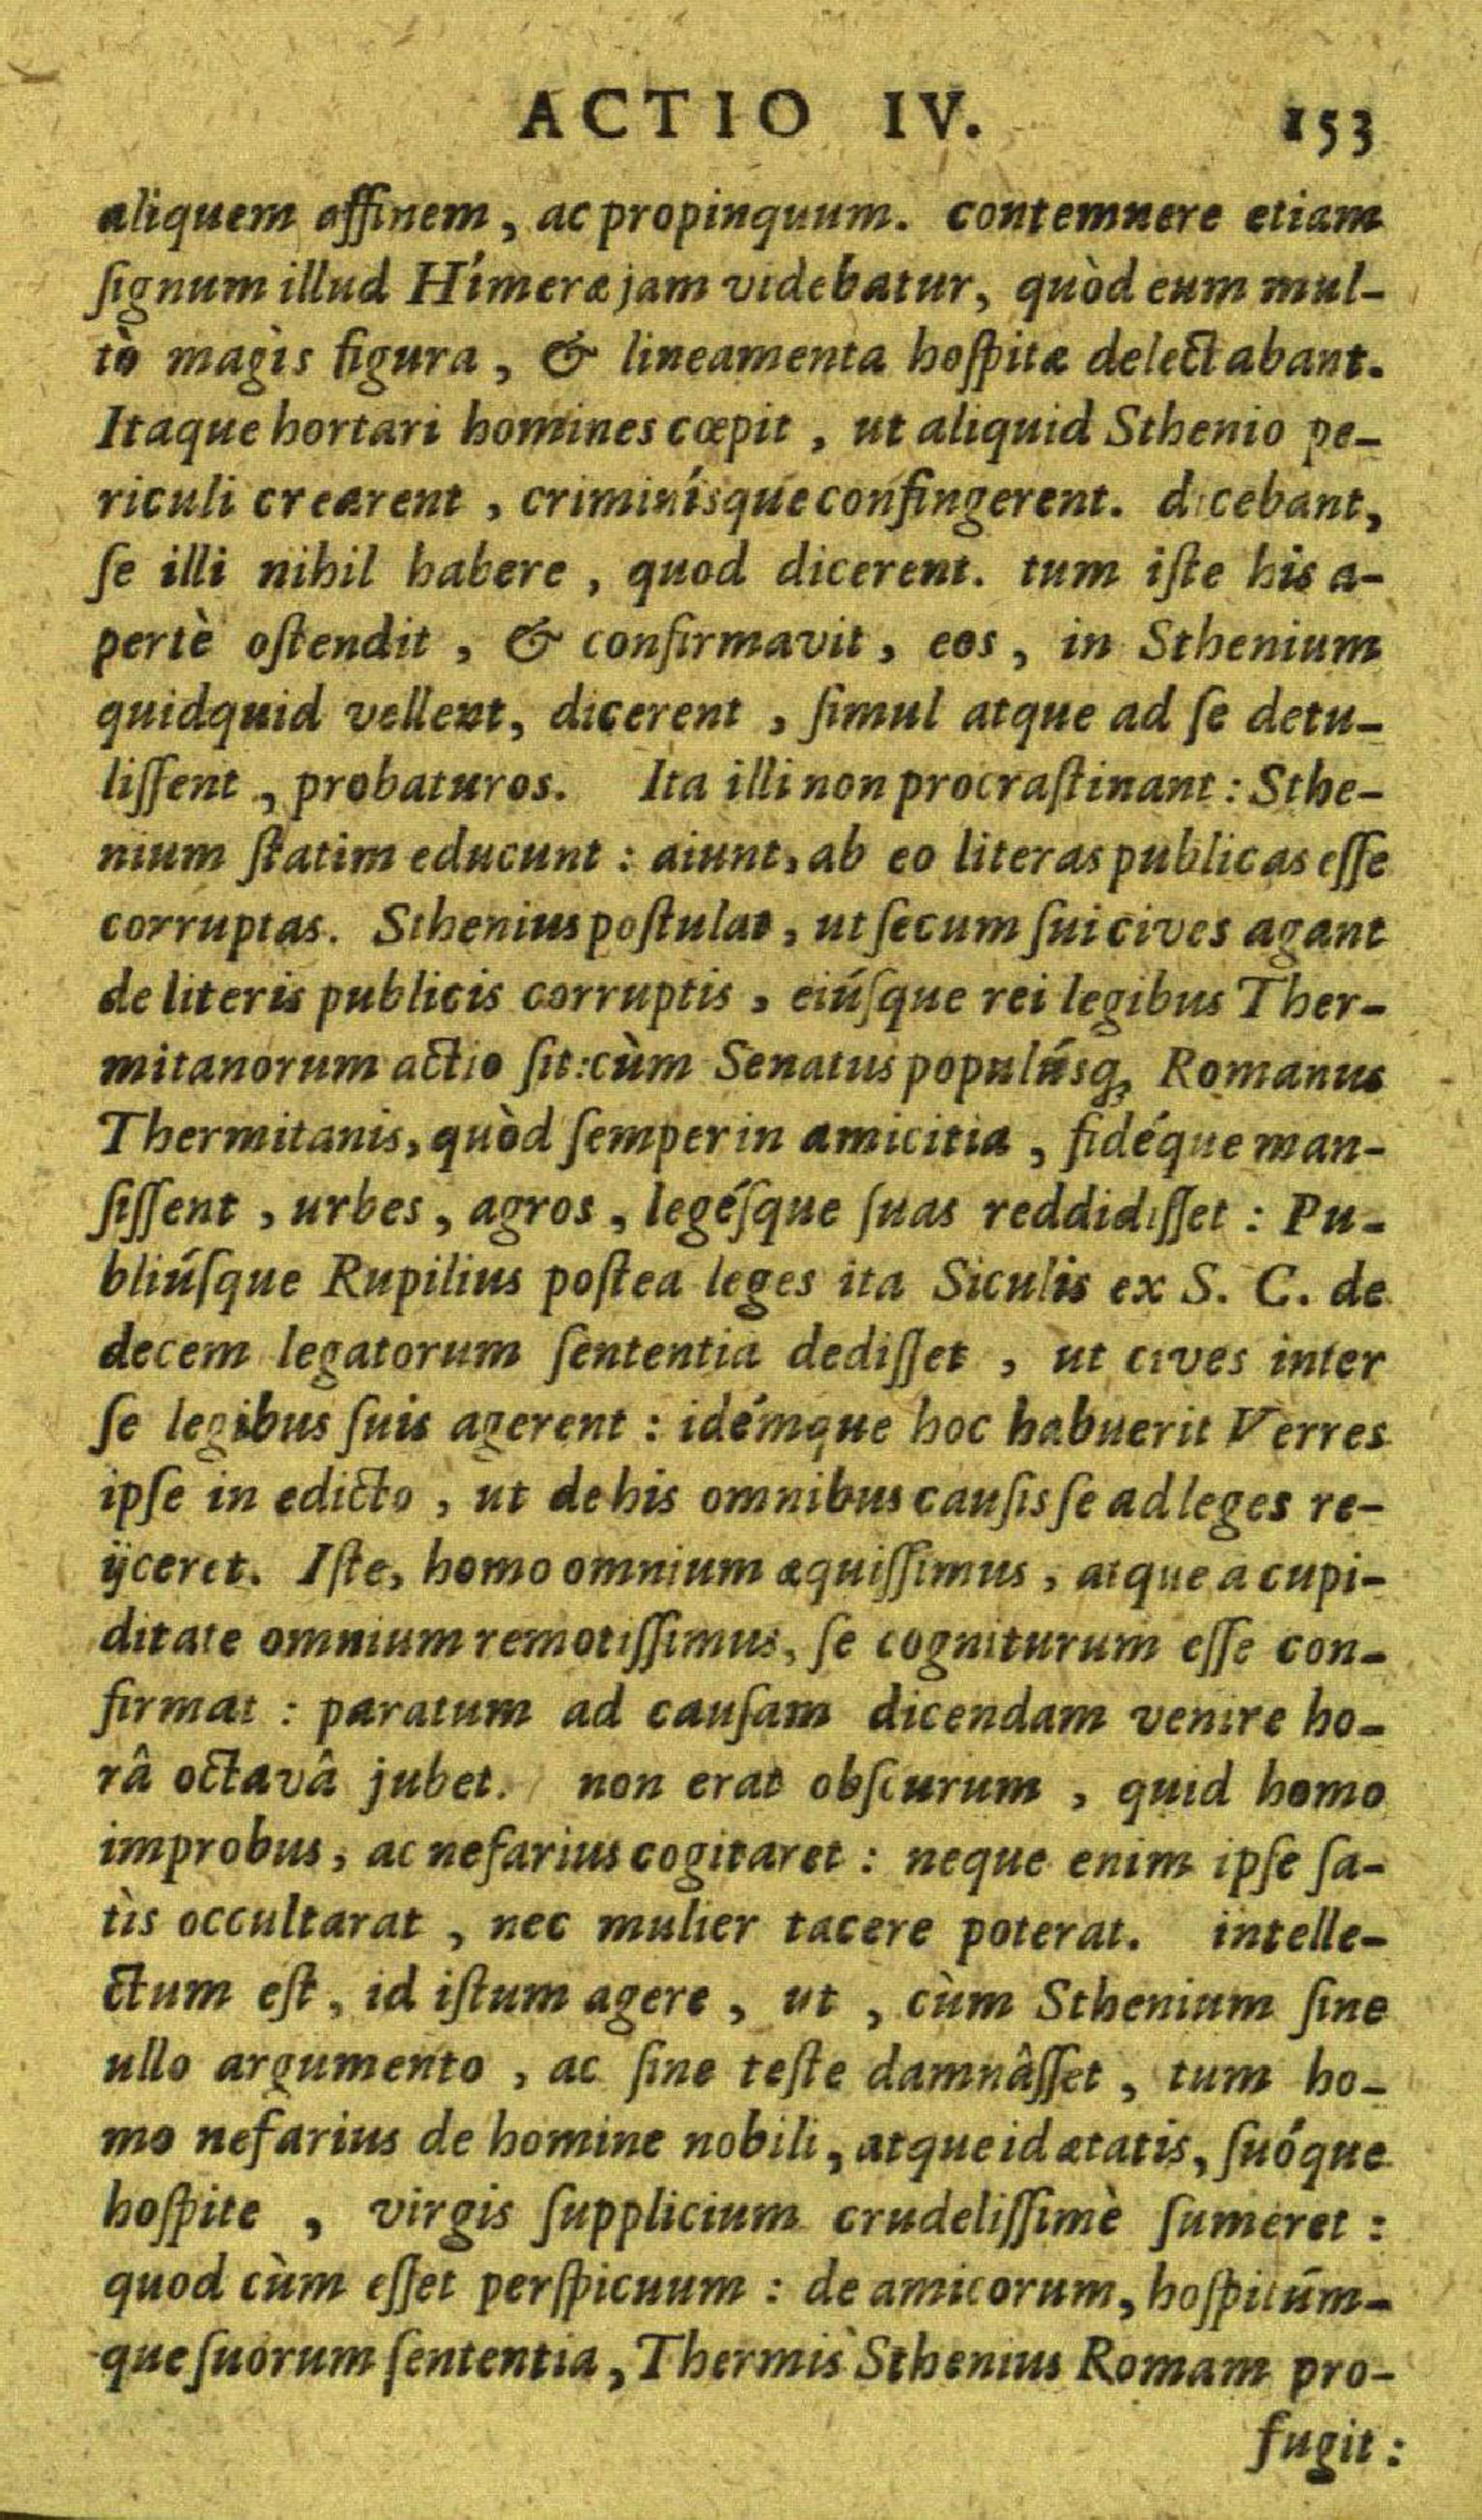 ACTIO IV. 153
aliquem affinem, ac propinquum. contemnere etiam
ſignum illud Hímeræ jam videbatur, quòd eum mul-
tò magìs figura, & lineamenta hoſpitæ delectabant.
Itaque hortari homines cœpit, ut aliquid Sthenio pe-
riculi crearent, criminísque confingerent. dicebant,
ſe illi nihil habere, quod dicerent. tum iſte his a-
pertè oſtendit, & confirmavit, eos, in Sthenium
quidquid vellent, dicerent, ſimul atque ad ſe detu-
liſſent, probaturos. Ita illi non procraſtinant: Sthe-
nium ſtatim educunt: aiunt, ab eo literas publicas eſſe
corruptas. Sthenius poſtulat, ut ſecum ſui cives agant
de literis publicis corruptis, eiúſque rei legibus Ther-
mitanorum actio ſit: cùm Senatus populúsq; Romanus
Thermitanis, quòd ſemper in amicitia, fidéque man-
ſiſſent, urbes, agros, legéſque ſuas reddidiſſet: Pu-
bliúſque Rupilius poſtea leges ita Siculis ex S. C. de
decem legatorum ſententia dediſſet, ut cives inter
ſe legibus ſuis agerent: idémque hoc habuerit Verres
ipſe in edicto, ut de his omnibus cauſis ſe ad leges re-
ijceret. Iſte, homo omnium æquiſſimus, atque a cupi-
ditate omnium remotiſſimus, ſe cogniturum eſſe con-
firmat: paratum ad cauſam dicendam venire ho-
râ octavâ jubet. non erat obſcurum, quid homo
improbus, ac nefarius cogitaret: neque enim ipſe ſa-
tìs occultarat, nec mulier tacere poterat. intelle-
ctum eſt, id iſtum agere, ut, cùm Sthenium ſine
ullo argumento, ac ſine teſte damnâſſet, tum ho-
mo nefarius de homine nobili, atque id ætatis, ſuóque
hoſpite, virgis ſupplicium crudeliſſimè ſumeret:
quod cùm eſſet perſpicuum: de amicorum, hoſpitúm-
que ſuorum ſententia, Thermis Sthenius Romam pro-
fugit: